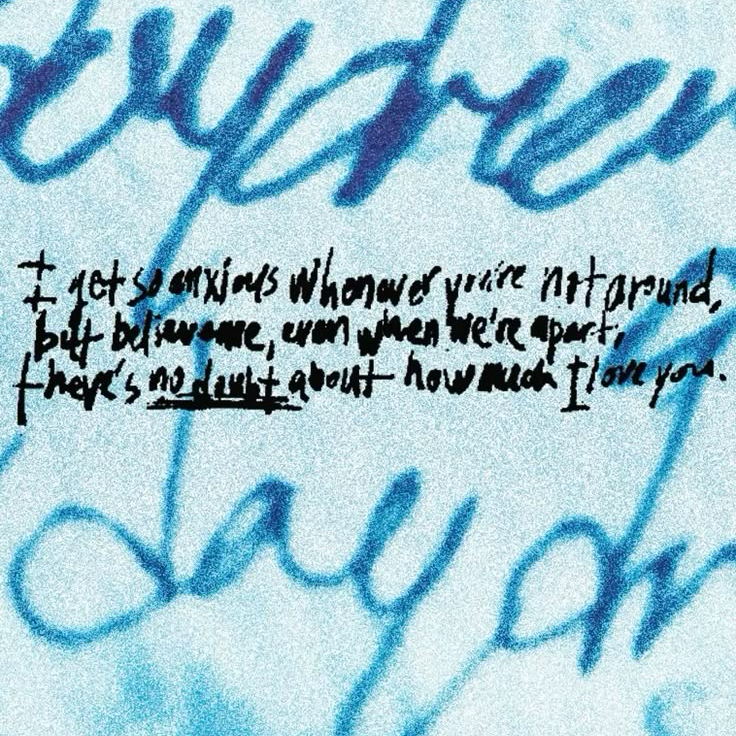 I get so anxious whenever you're not around,
but believe me, even when we're apart,
there's no doubt about how much I love you.
day